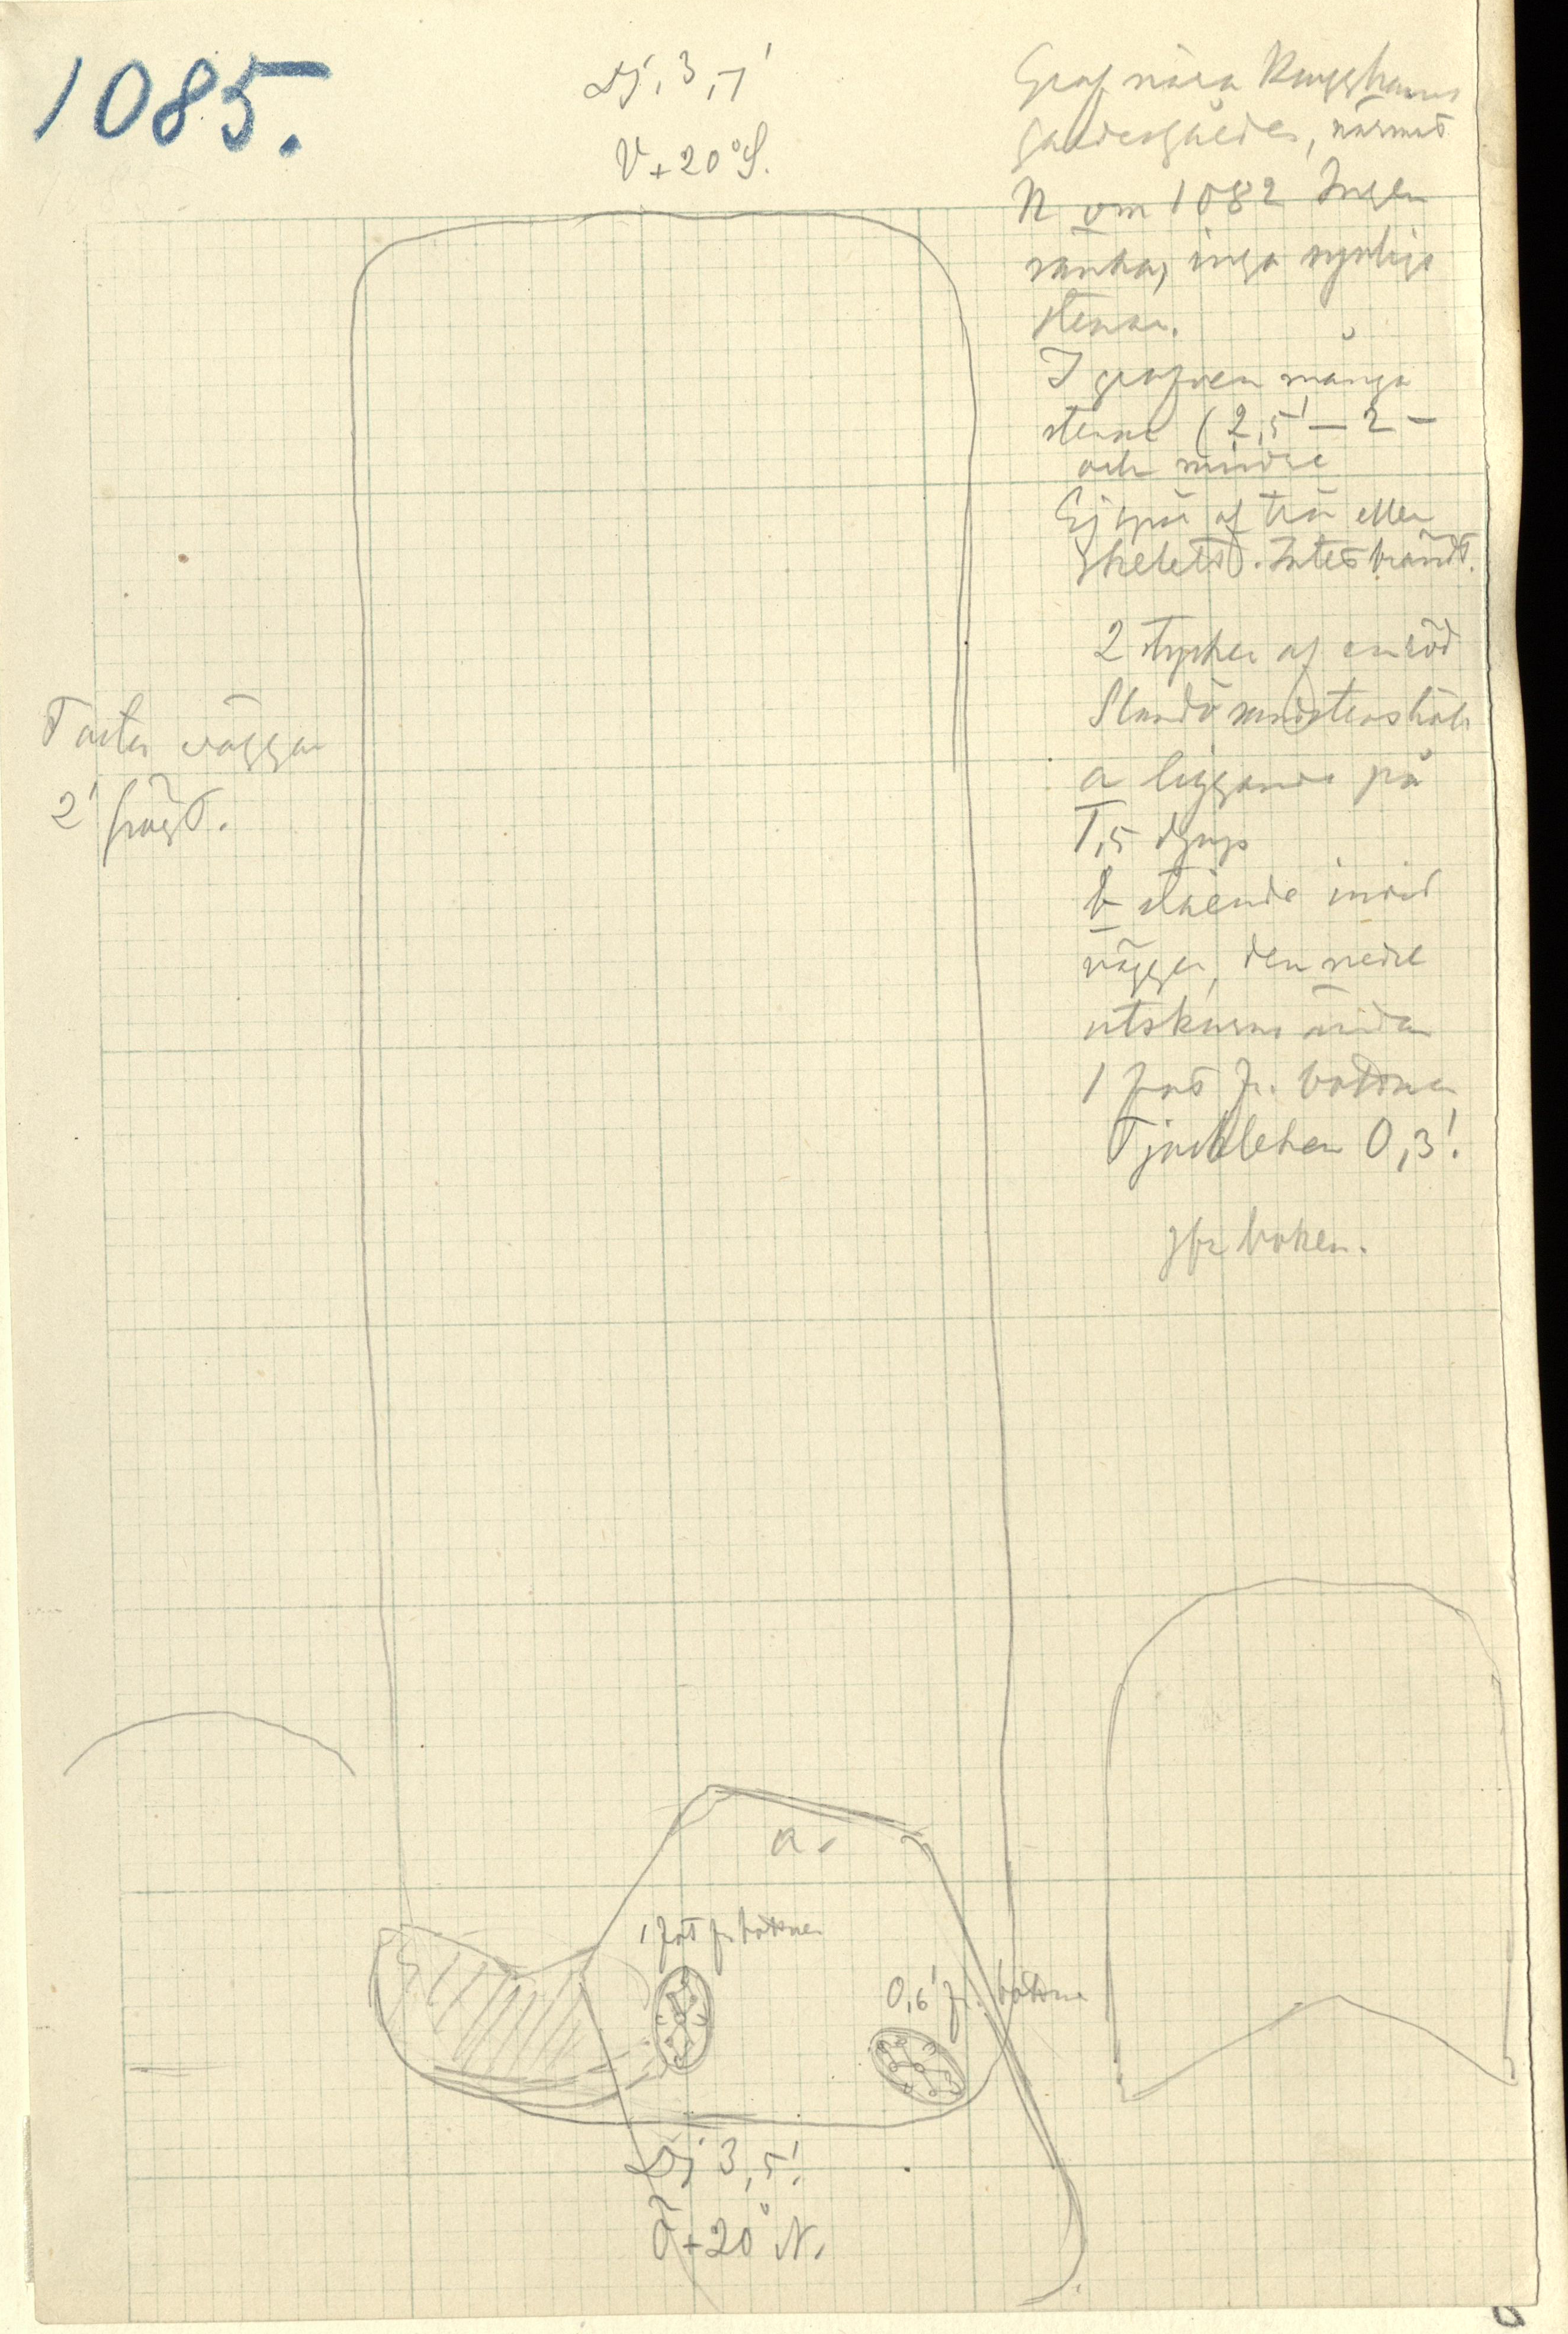 1085.
Dj. 3,7'
V + 20° S.
Graf nära Ringghams
gärdesgården, närmast
N om 1082 Ingen
ränka, inga synliga
stenar.
I grafven många
stenar (2,5' — 2 —
och mindre
Ej spår af trä eller
Skelett. Intet brändt.
2 stycken af en röd
sandstenshäll
a liggande på
1,5 djup
b stående invid
väggen, den nedre
utskurna ändan
1 fot fr. bottnen
Tjockleken 0,3'.
jfr boken.
Fasta väggar
2' högt.
a.
1 fot fr. bottnen
0,6' fr. bottnen
Dj 3,5'.
Ö + 20° N.